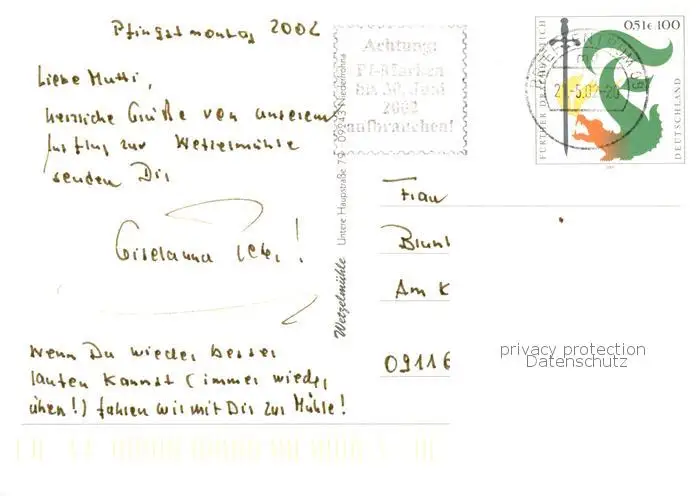 Pfingstmontag 2002
Liebe Mutti,
herzliche Grüße von unserem
Ausflug zur Wetzelmühle
senden Dir
Giselanna !
Wenn Du wieder besser
laufen kannst (immer wieder
üben!) fahren wir mit Dir zur Mühle!
Wetzelmühle Untere Hauptstraße 79 09243 Niederfrohna
Achtung:
Pf-Marken
bis 30. Juni
2002
aufbrauchen!
BRIEFZENTRUM 09
21.-5.02-20
FÜRTHER DRACHENSTICH
0,51€ 100
DEUTSCHLAND
Frau
Am K
09116
privacy protection
Datenschutz